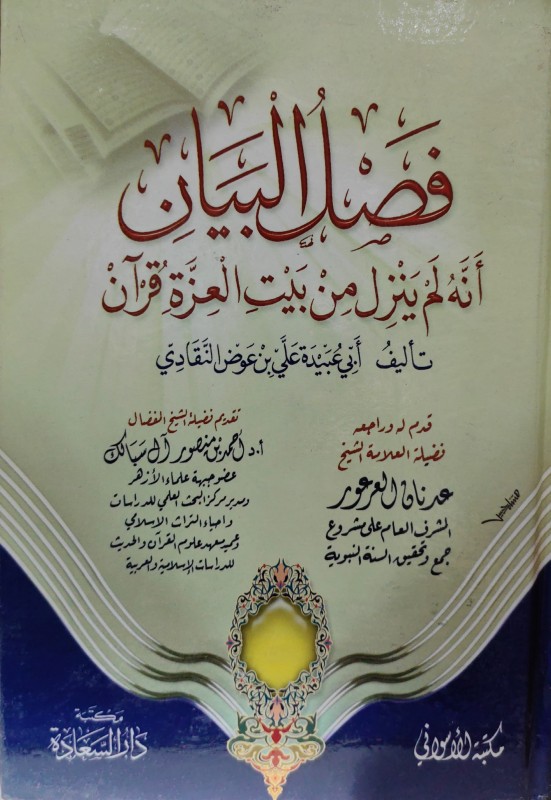 فَصْلُ البَيَانِ
أَنَّهُ لَمْ يَنْزِل مِنْ بَيْتِ العِزَّةِ قُرْآنْ
تأليفُ أَبِي عُبَيْدَة عَلَي بْن عَوَض النَّقَادِي
قدم له وراجعه
فضيلة العلامة الشيخ
عدنان العرعور
المشرف العام على مشروع
جمع وتحقيق السنة النبوية
تقديم فضيلة الشيخ المفضال
أ.د أحمد بن منصور آل سبالك
عضو جبهة علماء الأزهر
ومدير مركز البحث العلمي للدراسات
واحياء التراث الاسلامي
وعميد معهد علوم القرآن والحديث
للدراسات الإسلامية والعربية
مكتبة الأمواني
مكتبة
دار السعادة